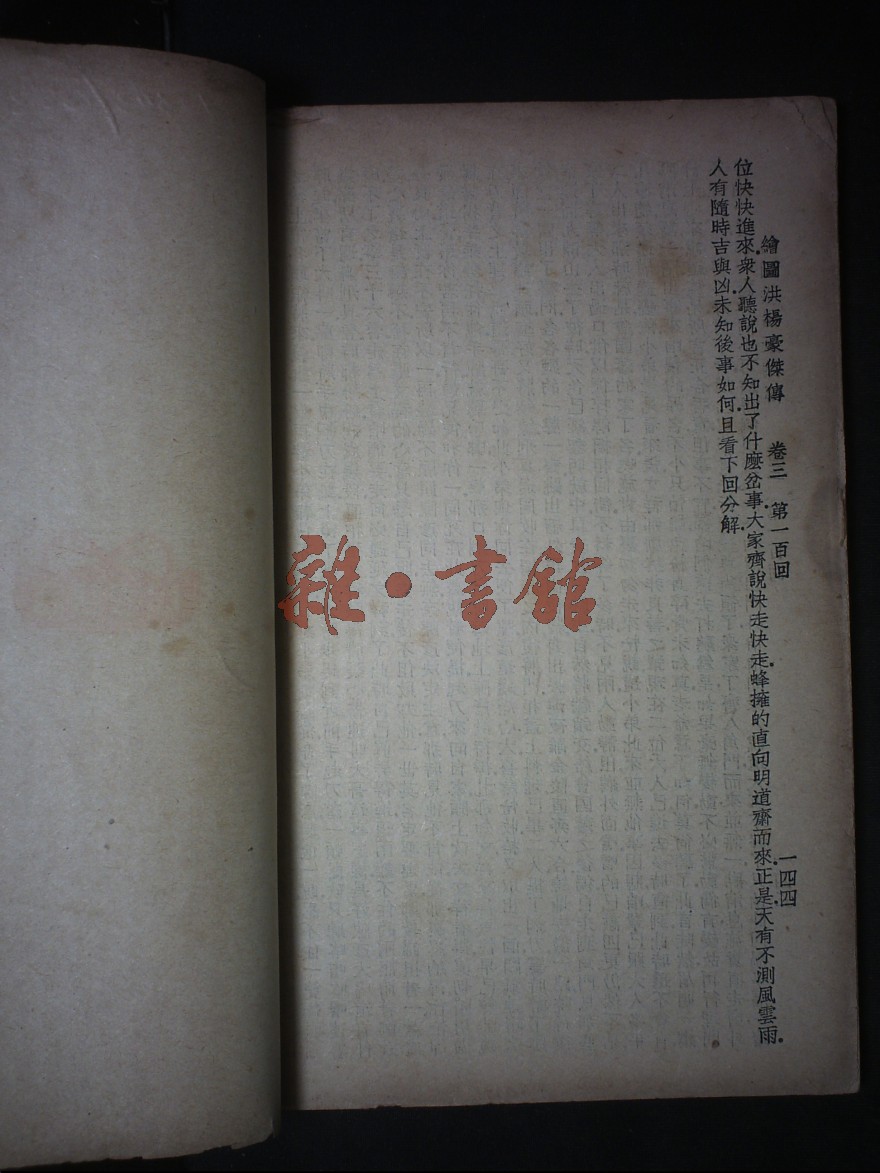 繪圖洪楊豪傑傳 卷三 第一百回 一四四
位快快進來.衆人聽說也不知出了什麽岔事.大家齊說快走快走.蜂擁的直向明道齋而來.正是.天有不測風雲雨.
人有隨時吉與凶.未知後事如何.且看下回分解.
雜·書館